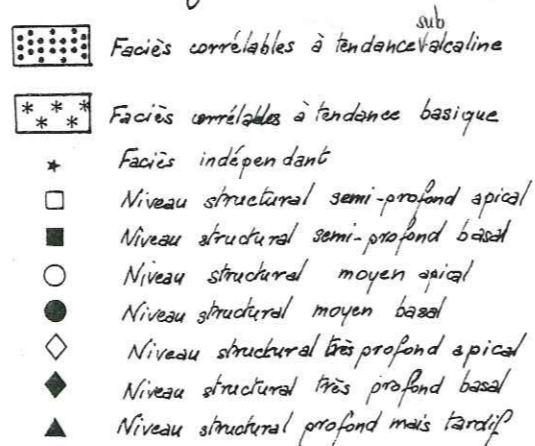 Faciès corrélables à tendance subalcaline
Faciès corrélables à tendance basique
Faciès indépendant
Niveau structural semi-profond apical
Niveau structural semi-profond basal
Niveau structural moyen apical
Niveau structural moyen basal
Niveau structural très profond apical
Niveau structural très profond basal
Niveau structural profond mais tardif